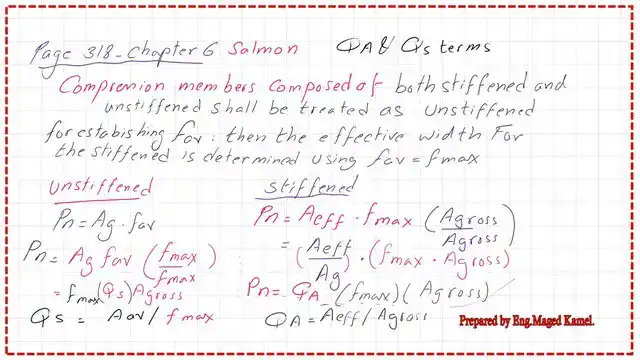 Page 318-Chapter 6 Salmon QA & Qs terms
Compression members composed of both stiffened and
unstiffened shall be treated as unstiffened
for estabishing fav: then the effective width For
the stiffened is determined using fav = fmax
unstiffened
Pn = Ag . fav
Pn = Ag fav (fmax/fmax)
= fmax (Qs) Agross
Qs = Aav / fmax
stiffened
Pn = Aeff . fmax (Agross/Agross)
= (Aeff/Ag) . (fmax . Agross)
Pn = QA (fmax)(Agross)
QA = Aeff / Agross
Prepared by Eng.Maged Kamel.